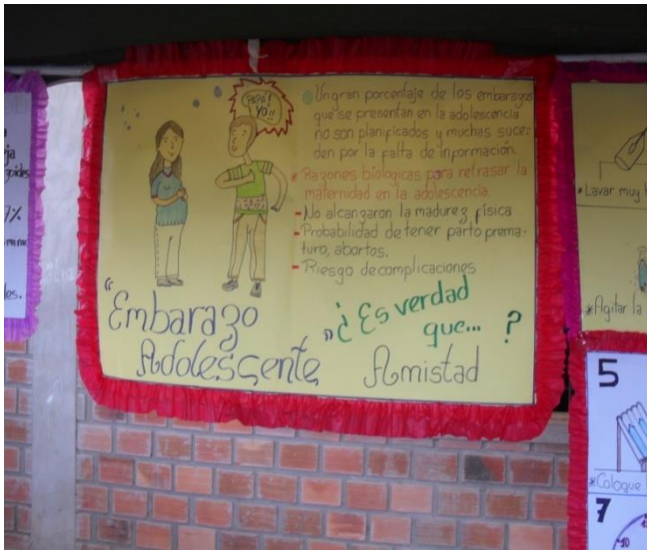 PAPÁ!
YO!!
Un gran porcentaje de los embarazos
que se presentan en la adolescencia
no son planificados y muchas suce-
den por la falta de información.
* Razones biológicas para retrasar la
maternidad en la adolescencia.
- No alcanzaron la madurez física
- Probabilidad de tener parto prema-
turo, abortos.
- Riesgo de complicaciones
"Embarazo
Adolescente"
¿Es verdad
que... ?
Amistad
7%
* Lavar muy
* Agitar la
5
* Coloque
7
10